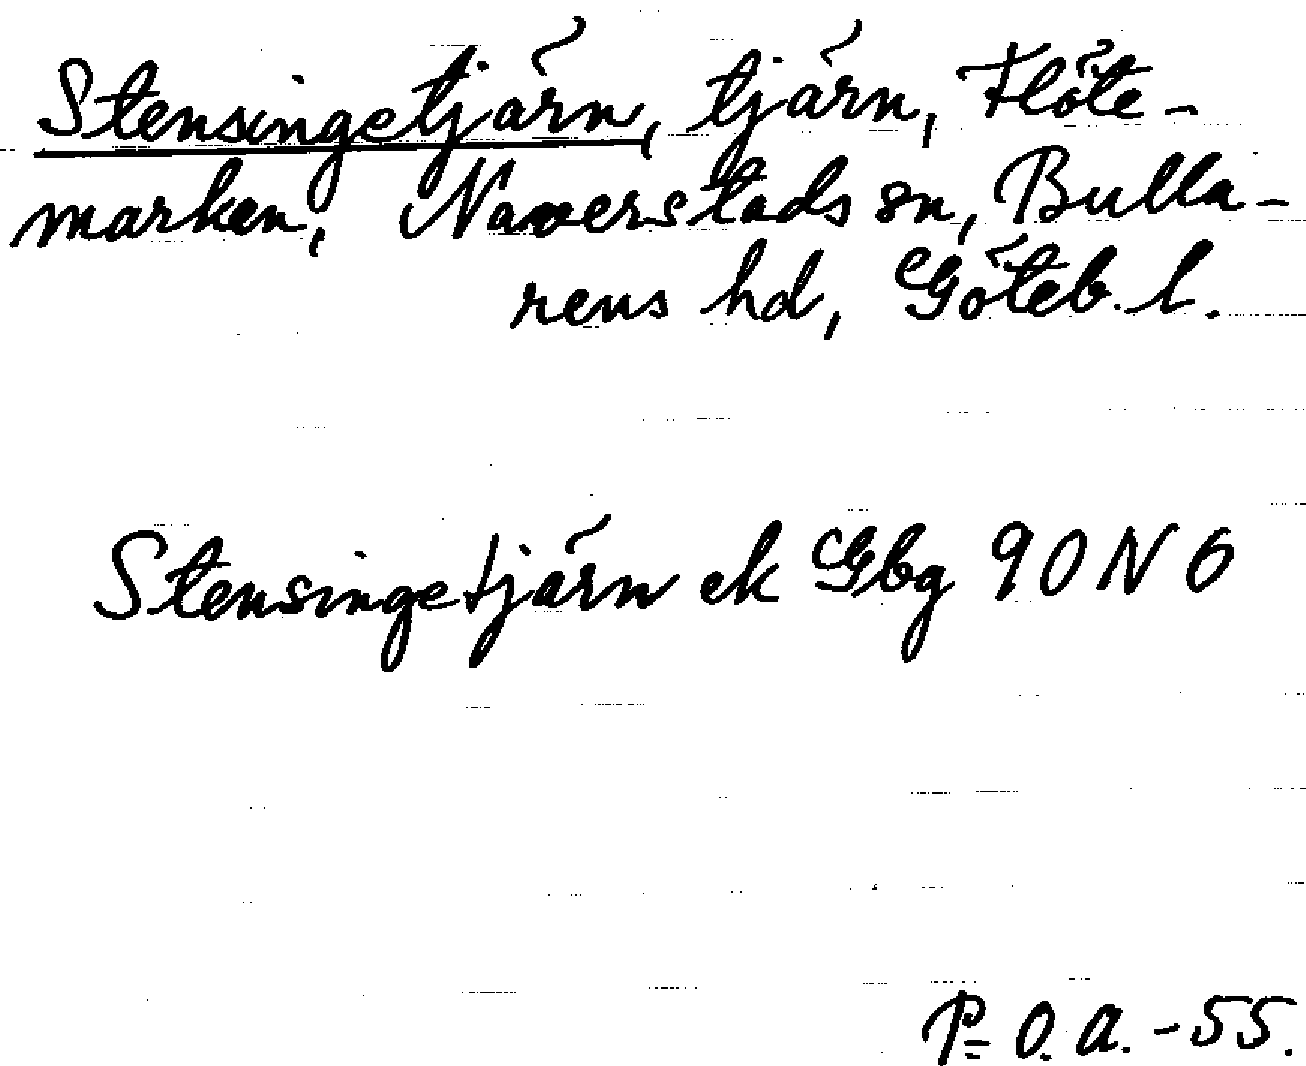 Stensingetjärn, tjärn, Flöte-
marken, Naverstads sn, Bulla-
rens hd, Göteb. l.
Stensingetjärn ek Gbg 90 N 6
P. O. A. -55.